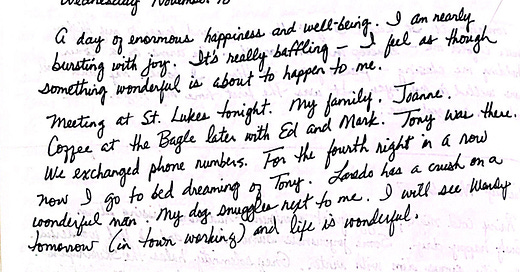 Wednesday November 18
A day of enormous happiness and well-being. I am nearly
bursting with joy. It's really baffling – I feel as though
something wonderful is about to happen to me.
Meeting at St. Lukes tonight. My family. Joanne.
Coffee at the Bagle later with Ed and Mark. Tony was there.
We exchanged phone numbers. For the fourth right in a row
now I go to bed dreaming of Tony. has a crush on a
wonderful man. My dog snuggles next to me. I will see Wendy
tomorrow (in town working) and life is wonderful.